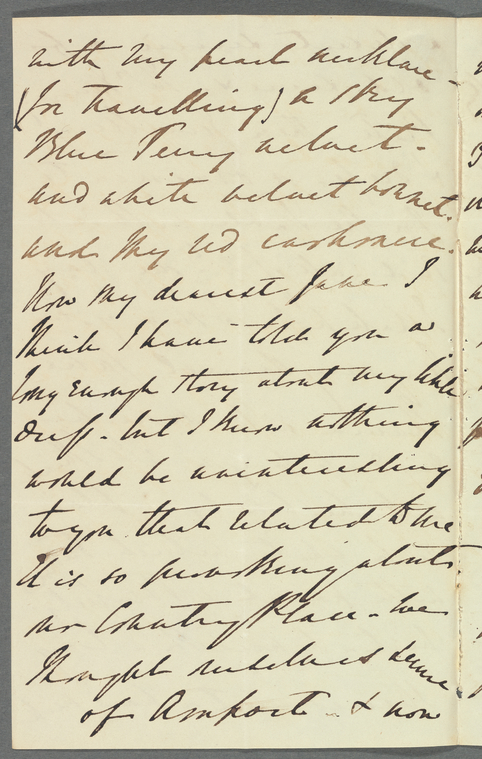 with my pearl necklace -
(for travelling) a sky
Blue Terry velvet -
and white velvet bonnet.
and my red cashmere.
Now my dearest Jane I
think I have told you a
long enough story about my little
self - but I know nothing
would be uninteresting
to you that related to me
It is so provoking about
our Country Place - We
thought ourselves secure
of Amport - & now